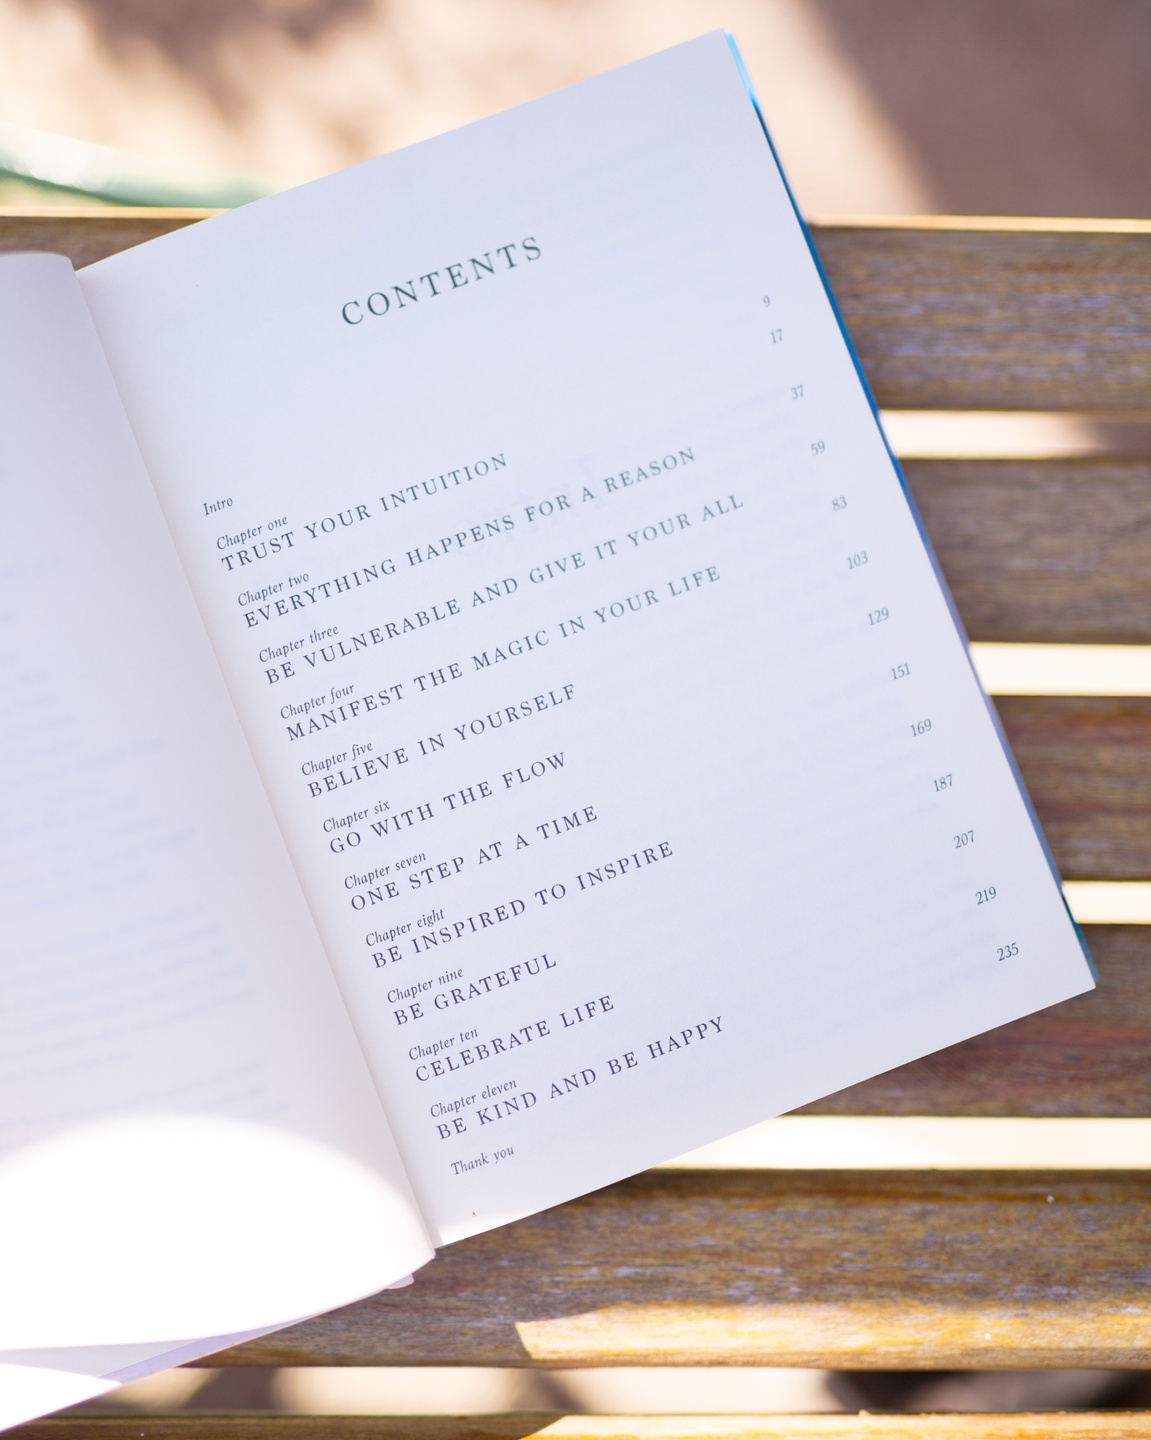 CONTENTS
Intro 9
Chapter one 17
TRUST YOUR INTUITION
Chapter two 37
EVERYTHING HAPPENS FOR A REASON
Chapter three 59
BE VULNERABLE AND GIVE IT YOUR ALL
Chapter four 83
MANIFEST THE MAGIC IN YOUR LIFE
Chapter five 103
BELIEVE IN YOURSELF
Chapter six 129
GO WITH THE FLOW
Chapter seven 151
ONE STEP AT A TIME
Chapter eight 169
BE INSPIRED TO INSPIRE
Chapter nine 187
BE GRATEFUL
Chapter ten 207
CELEBRATE LIFE
Chapter eleven 219
BE KIND AND BE HAPPY
Thank you 235